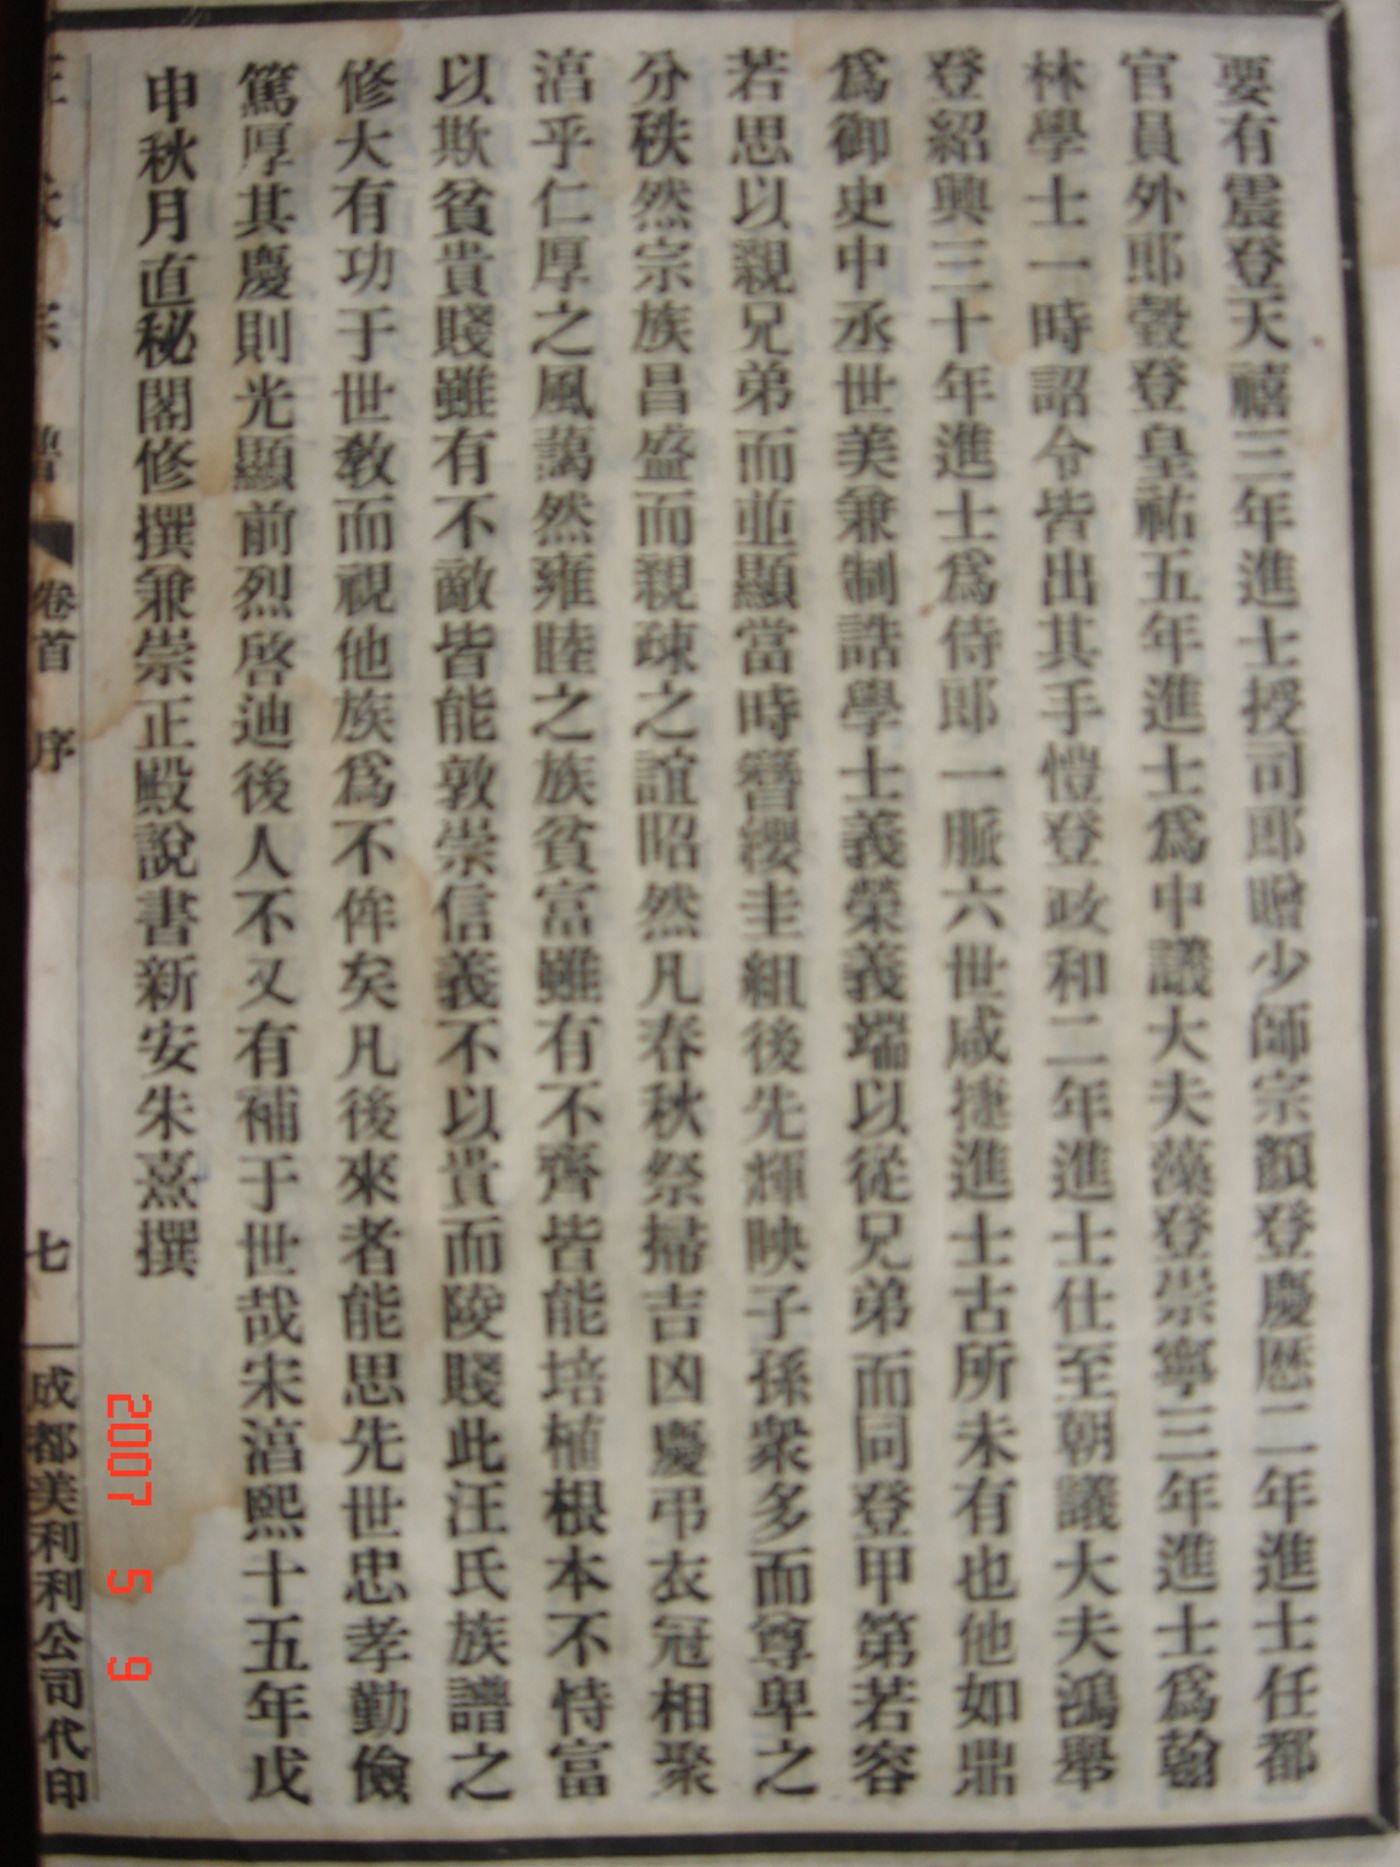 要有震登天禧三年進士授司郎贈少師宗顏登慶歷二年進士任都
官員外郎縠登皇祐五年進士爲中議大夫藻登崇寧三年進士爲翰
林學士一時詔令皆出其手愷登政和二年進士仕至朝議大夫鴻舉
登紹興三十年進士爲侍郎一脈六世咸捷進士古所未有也他如鼎
爲御史中丞世美兼制誥學士義榮義端以從兄弟而同登甲第若容
若思以親兄弟而並顯當時簪纓圭組後先輝映子孫衆多而尊卑之
分秩然宗族昌盛而親疎之誼昭然凡春秋祭掃吉凶慶弔衣冠相聚
湻乎仁厚之風藹然雍睦之族貧富雖有不齊皆能培植根本不恃富
以欺貧貴賤雖有不敵皆能敦崇信義不以貴而陵賤此汪氏族譜之
修大有功于世教而視他族爲不侔矣凡後來者能思先世忠孝勤儉
篤厚其慶則光顯前烈啓迪後人不又有補于世哉宋湻熙十五年戊
申秋月直秘閣修撰兼崇正殿說書新安朱熹撰
卷首 序
七
成都美利利公司代印
2007 5 9